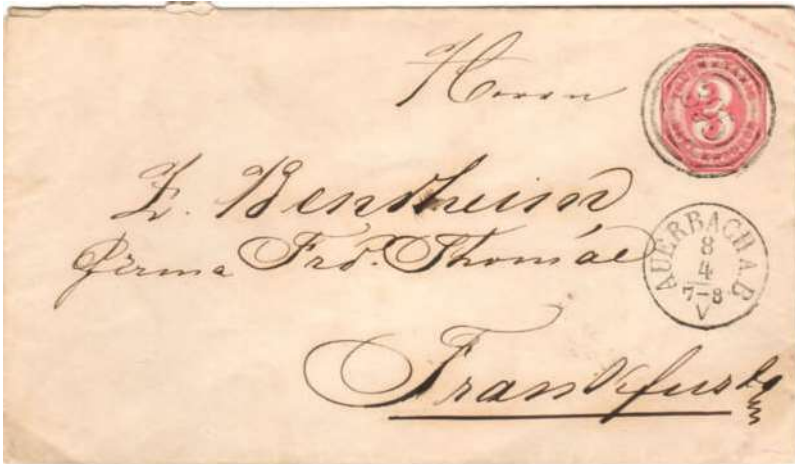 Herrn
3
Z. Bendheim
Firma Frd. Thomae
AUERBACH A. B
8
4
7-8
V
Frankfurt